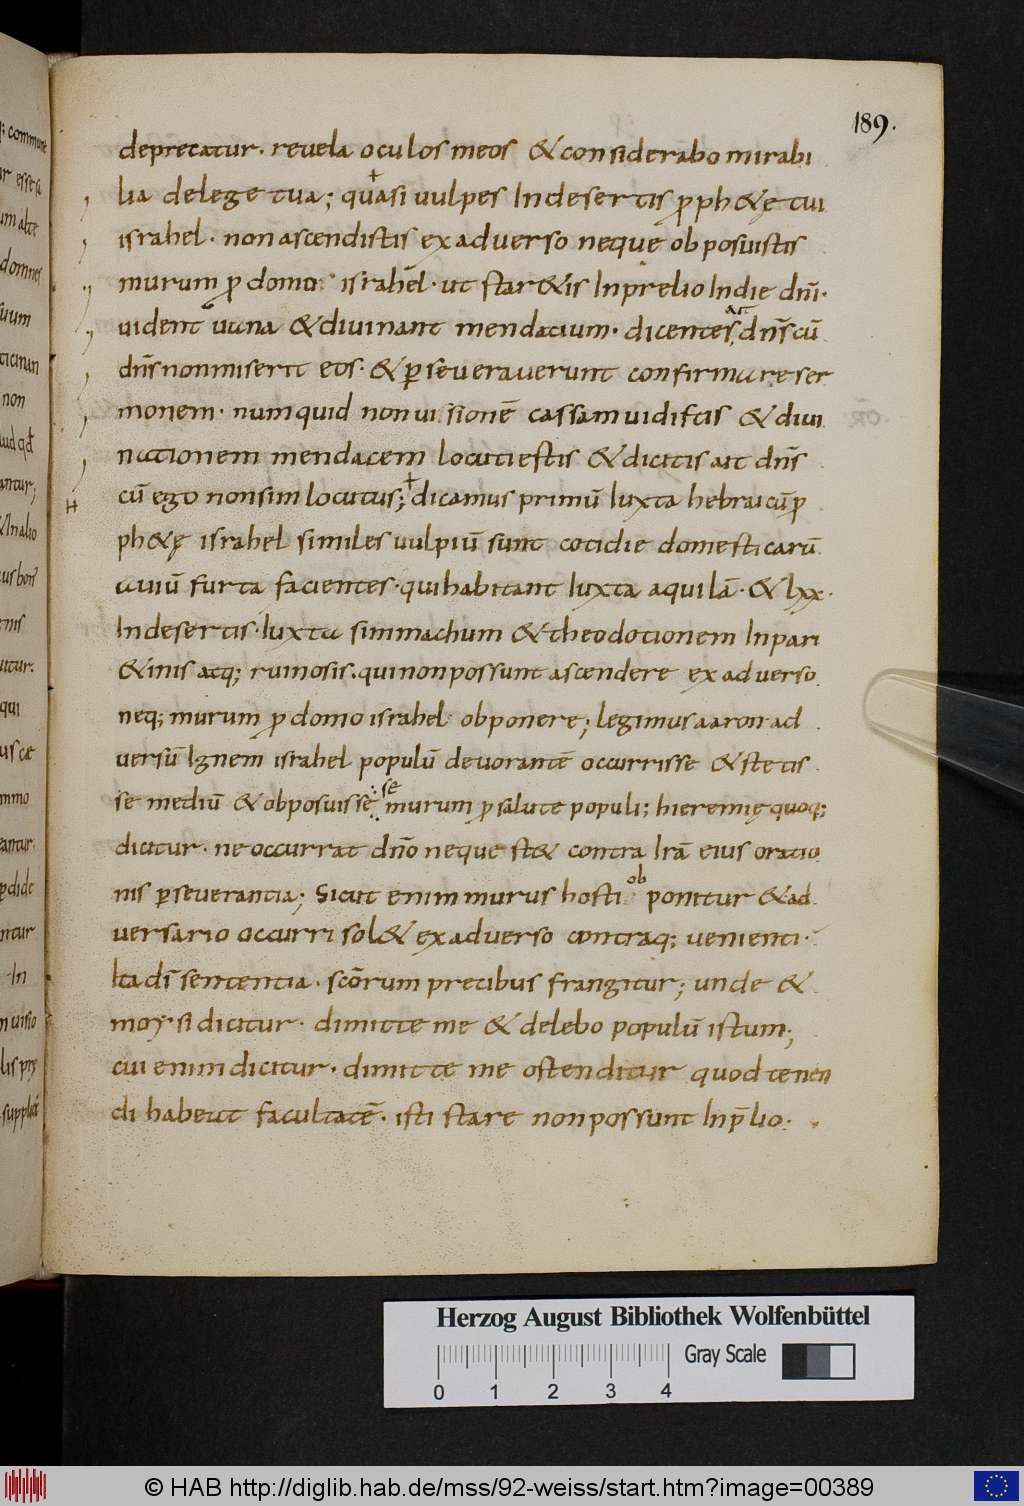 189.
deprecatur. revela oculos meos & considerabo mirabi
lia delege tua; quasi vulpes Indesertis pph&ę tui
israhel. non ascendistis ex adverso neque obposuistis
murum p domo israhel. ut star&is Inprelio Indie dnī.
vident vana & divinant mendacium. dicentes ait dn̄s cū
dn̄s non miserit eos. & perseveraverunt confirmare ser
monem. numquid non visionē cassam vidistis & divi
nationem mendacem locuti estis & dicitis ait dn̄s
cū ego non sim locutus; dicamus primū Iuxta hebraicū p
ph&ę israhel similes vulpiū sunt cotidie domesticarū
aviū furta facientes. qui habitant Iuxta aquilā. & lxx.
Indesertis. Iuxta simmachum & theodotionem Inpari
&inis atq; ruinosis. qui non possunt ascendere ex adverso
neq; murum p domo israhel obponere; legimus aaron ad
versū Ignem israhel populū devorantē occurrisse & stetis
se mediū & obposuisse se murum p salute populi; hieremię quoq;
dicitur. ne occurrat dn̄o neque st& contra Irā eius oratio
nis pseverantia; Sicut enim murus hosti obponitur & ad
versario occurri sol& ex adverso contraq; venienti.
Ita dī sententia. scōrum precibus frangitur; unde &
moysi dicitur. dimitte me & delebo populū istum;
cui enim dicitur. dimitte me ostenditur quod tenen
di habeat facultatē. isti stare non possunt Inp̄lio.
Herzog August Bibliothek Wolfenbüttel
Gray Scale
0 1 2 3 4
© HAB http://diglib.hab.de/mss/92-weiss/start.htm?image=00389